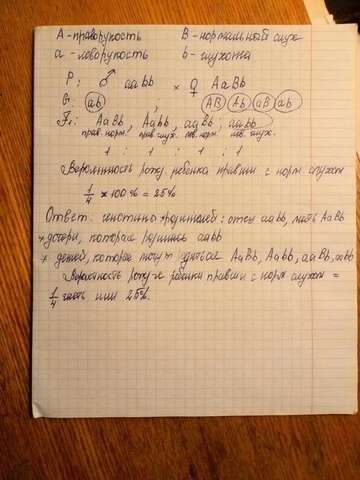 А - праворукость В - нормальный слух
а - леворукость b - глухота
P: ♂ aabb × ♀ AaBb
G: ab ; AB Ab aB ab
F₁: AaBb, Aabb, aaBb, aabb
прав. норм. прав. глух. лев. норм. лев. глух.
1 : 1 : 1 : 1
Вероятность рожд. ребенка правши с норм. слухом
1/4 × 100% = 25%
Ответ: генотипы родителей: отец aabb, мать AaBb
дочери, которая родилась aabb
детей, которые могут AaBb, Aabb, aaBb, aabb
Вероятность ребенка правши с норм. слухом =
1/4 часть или 25%.